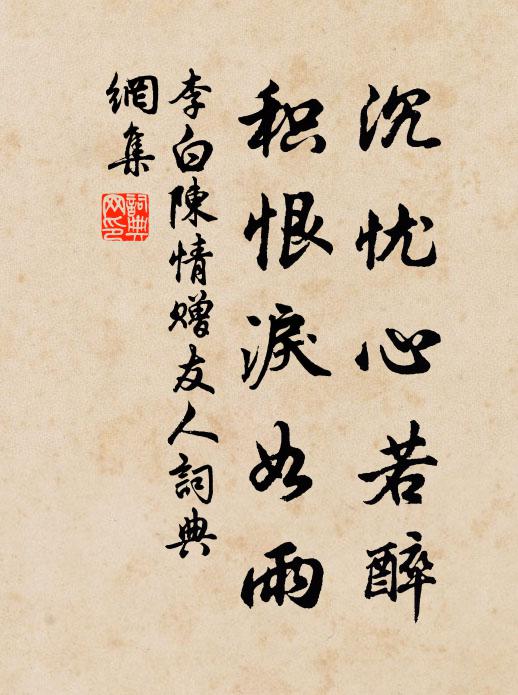 沉忧心若醉
积恨淚如雨
李白陳情贈友人詞典
網集
詞典
网印